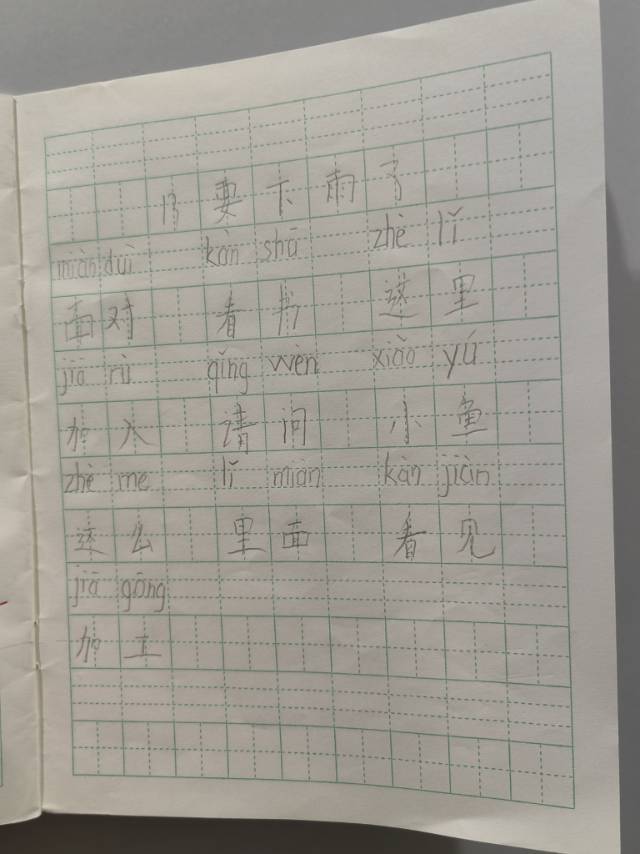 要下雨了
miàn duì kàn shū zhè lǐ
面对 看书 这里
jiā rù qǐng wèn xiǎo yú
加入 请问 小鱼
zhè me lǐ miàn kàn jiàn
这么 里面 看见
jiā gōng
加工